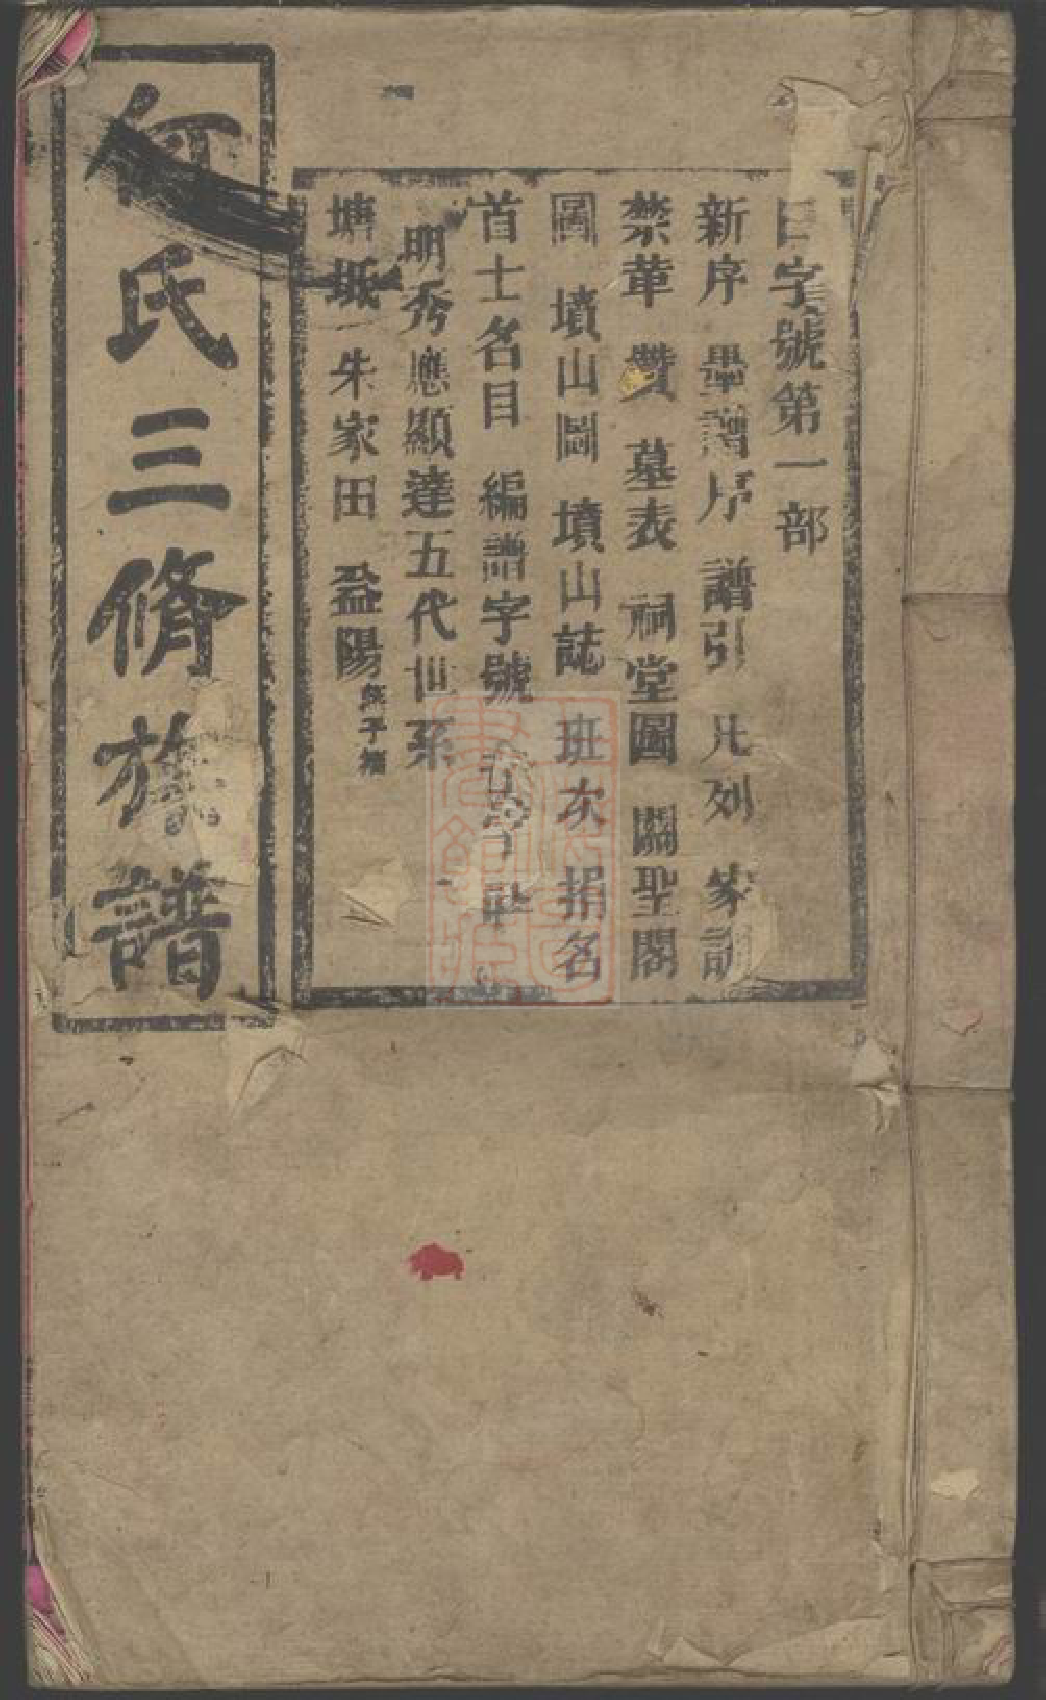 字號第一部
新序 墨譜序 譜引 凡列 家訓
禁革 贊 墓表 祠堂圖 關聖閣
圖 墳山圖 墳山誌 班次 捐名
首士名目 編譜字號
明秀應顯達五代世系
塘坻 朱家田 益陽
何氏三脩族譜